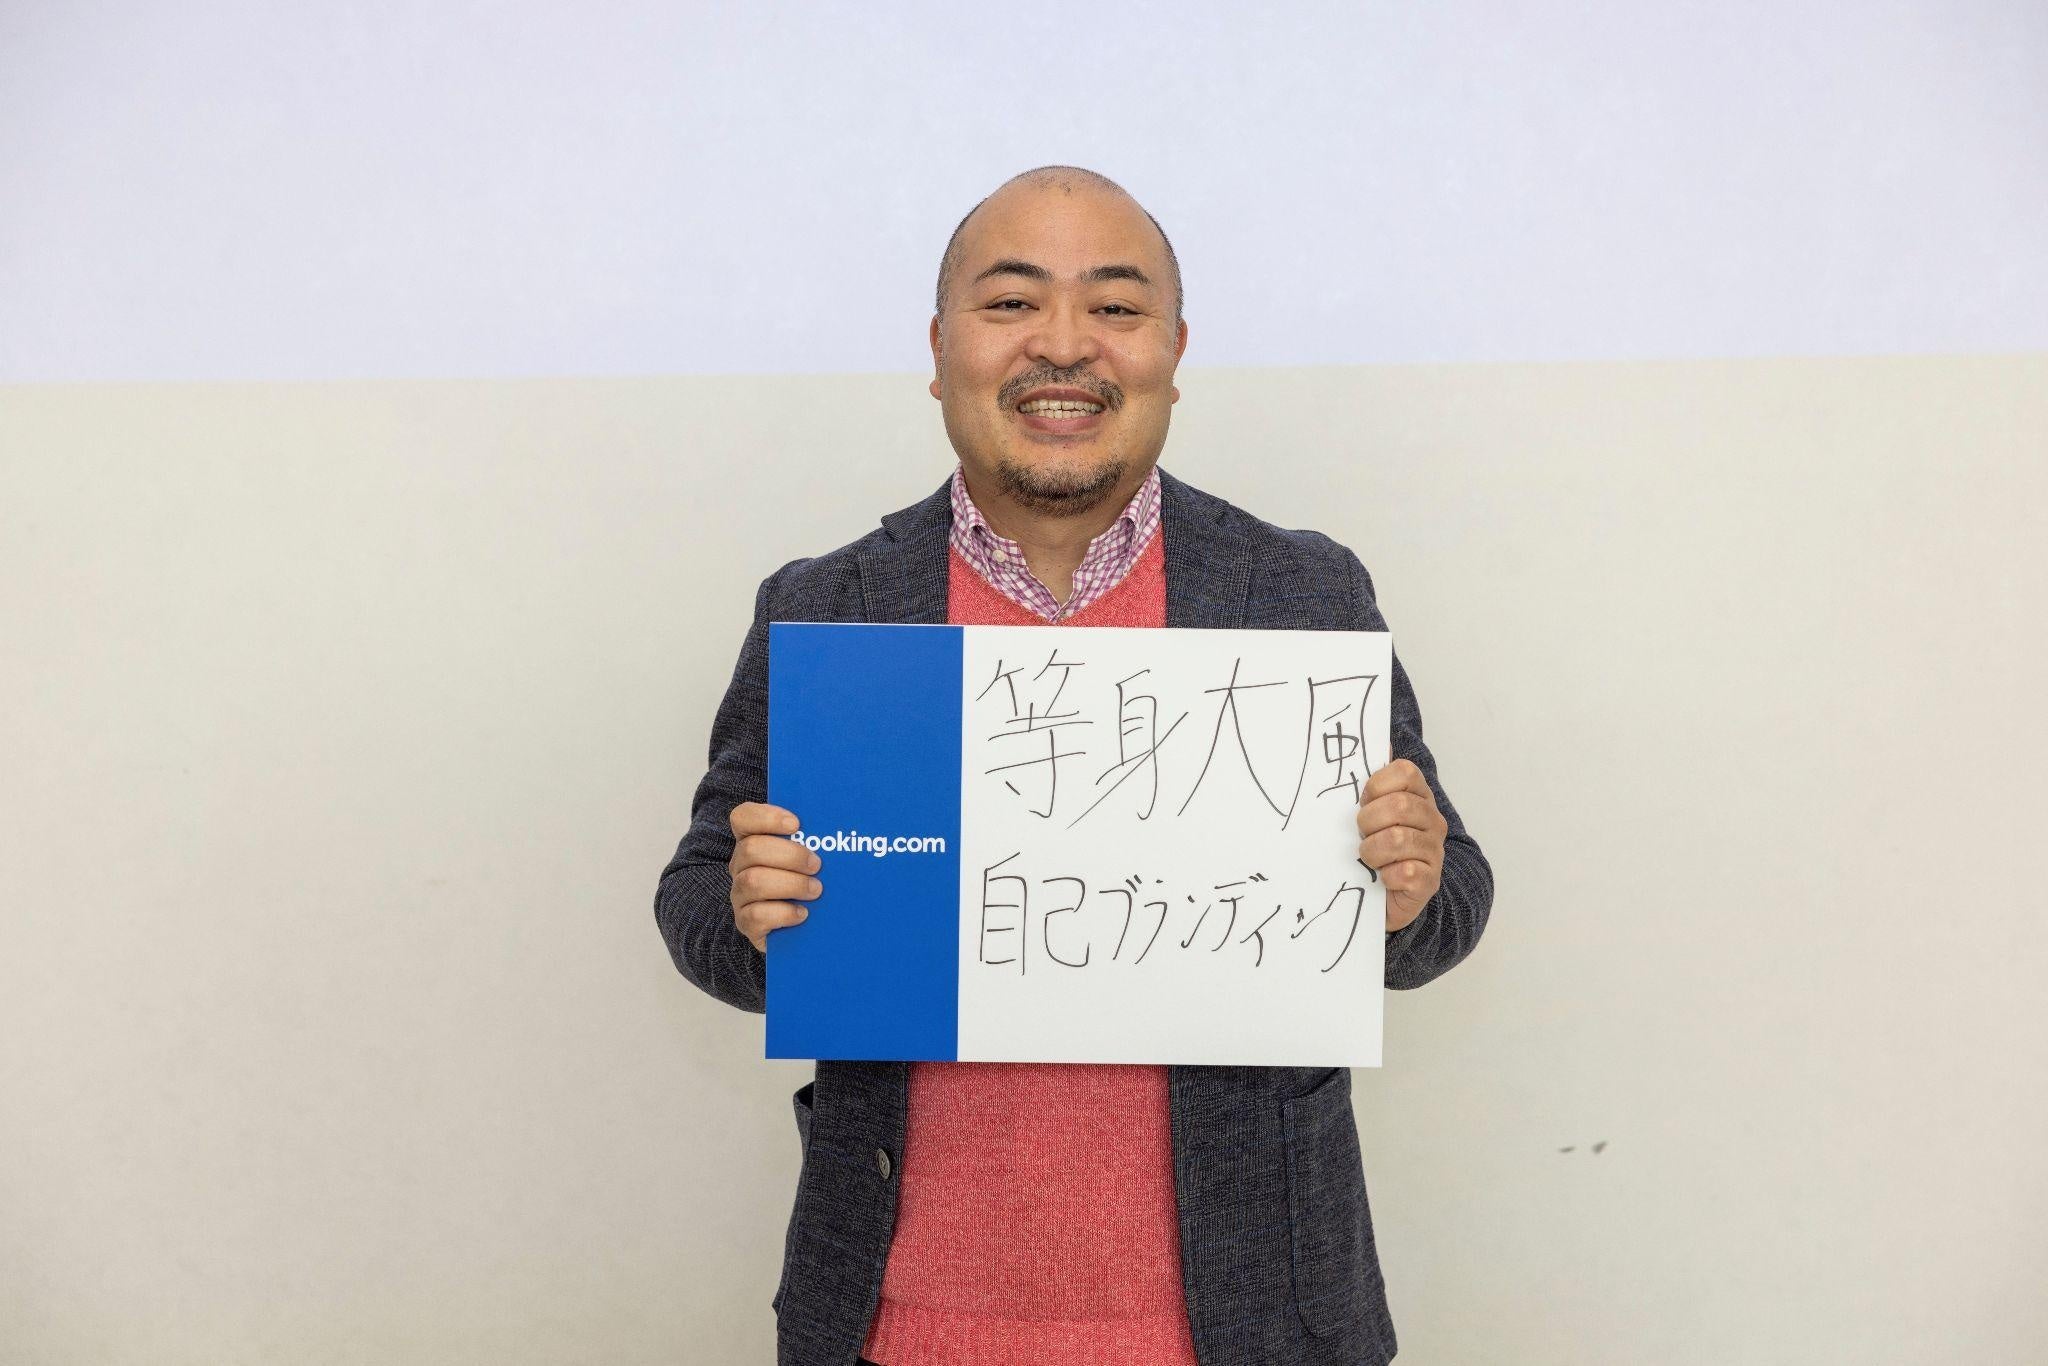 Booking.com
等身大風
自己ブランディング